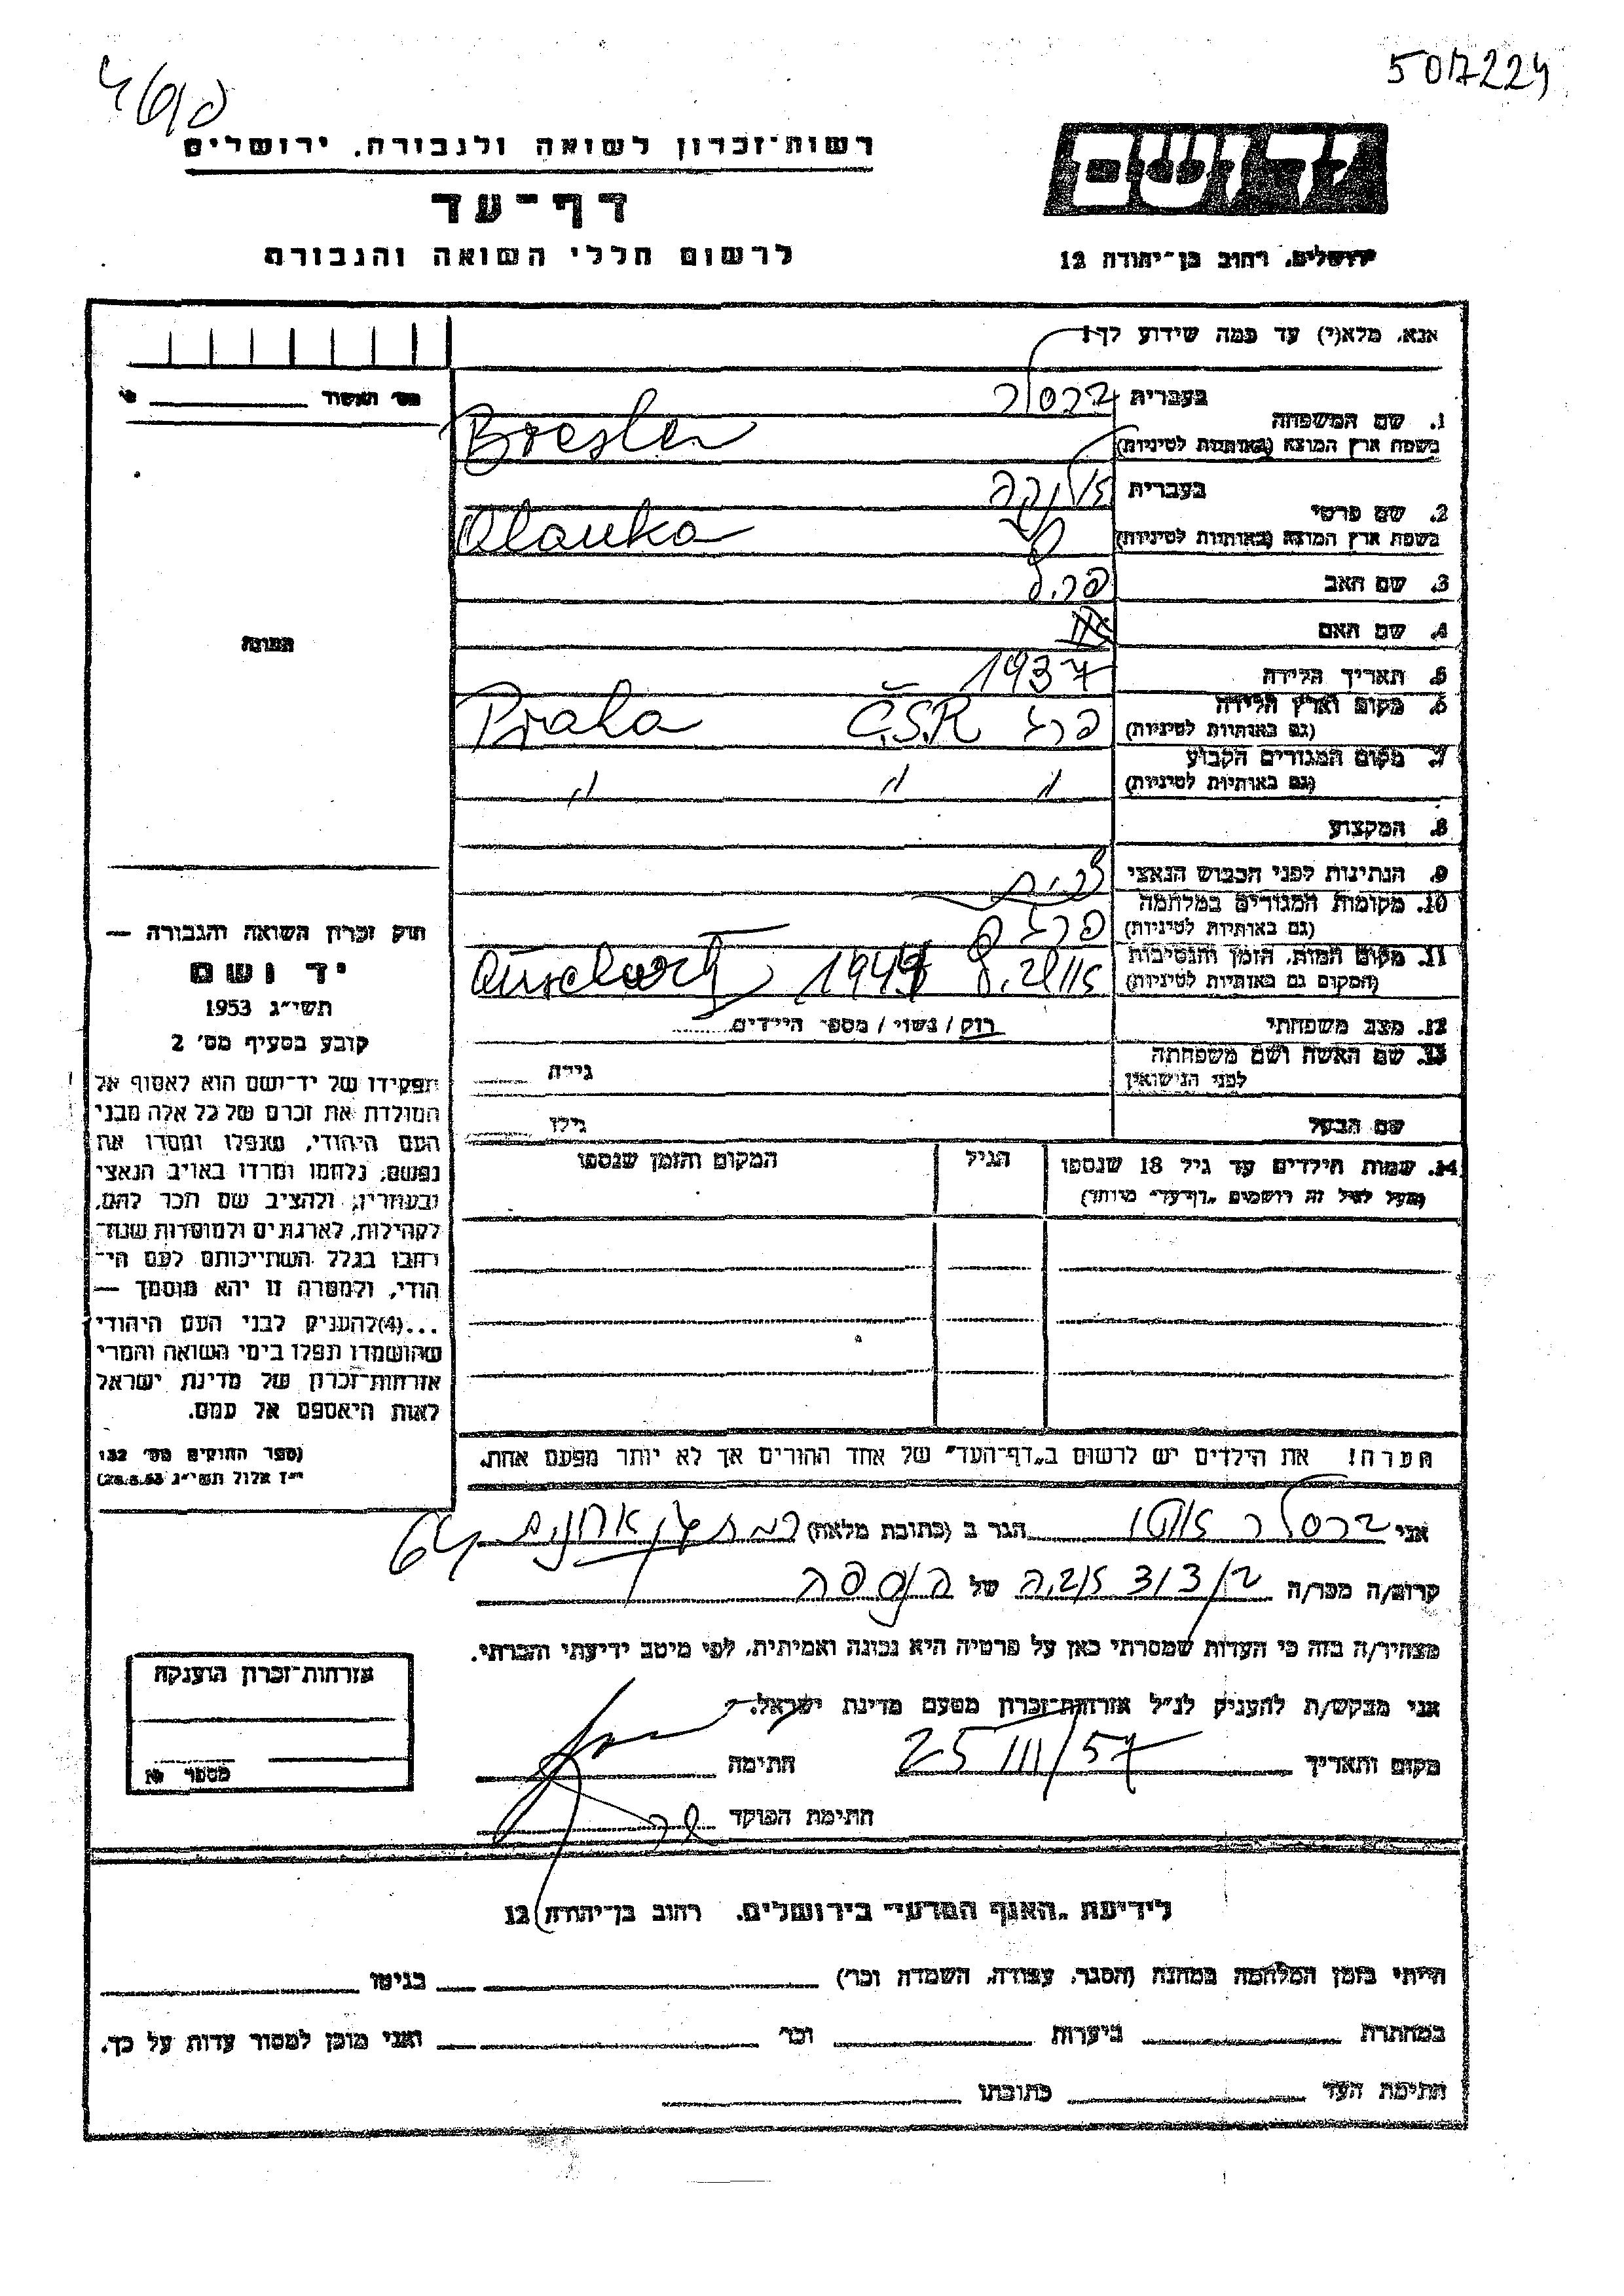 507224
רשות־זכרון לשואה ולגבורה, ירושלים
דף־עד
לרשום חללי השואה והגבורה
יד ושם
ירושלים, רחוב בן־יהודה 12
אנא, מלא(י) עד כמה שידוע לך!
מס' האשור
1. שם המשפחה
בעברית ברסלר
בשפת ארץ המוצא (באותיות לטיניות) Bresler
2. שם פרטי
בעברית
בשפת ארץ המוצא (באותיות לטיניות)
3. שם האב
4. שם האם
5. תאריך הלידה 1937
6. מקום וארץ הלידה
(גם באותיות לטיניות) פרג Č.S.R Praha
7. מקום המגורים הקבוע
(גם באותיות לטיניות) " " "
8. המקצוע
9. הנתינות לפני הכבוש הנאצי
10. מקומות המגורים במלחמה
(גם באותיות לטיניות) פרג
11. מקום המות, הזמן והנסיבות
(המקום גם באותיות לטיניות)
12. מצב משפחתי רוק / נשוי / מספר הילדים
13. שם האשה ושם משפחתה
לפני הנישואין גילה
שם הבעל גילו
14. שמות הילדים עד גיל 18 שנספו הגיל המקום והזמן שנספו
(מעל לגיל זה רושמים "דף־עד" מיוחד)
הערה! את הילדים יש לרשום ב"דף־העד" של אחד ההורים אך לא יותר מפעם אחת.
התמונה
חוק זכרון השואה והגבורה —
יד ושם
תשי"ג 1953
קובע בסעיף מס' 2
תפקידו של יד־ושם הוא לאסוף אל
המולדת את זכרם של כל אלה מבני
העם היהודי, שנפלו ומסרו את
נפשם, נלחמו ומרדו באויב הנאצי
ובעוזריו, ולהציב שם וזכר להם,
לקהילות, לארגונים ולמוסדות שנח־
רבו בגלל השתייכותם לעם הי־
הודי, ולמטרה זו יהא מוסמך —
...(4) להעניק לבני העם היהודי
שהושמדו ונפלו בימי השואה והמרי
אזרחות־זכרון של מדינת ישראל
לאות היאספם אל עמם.
(ספר החוקים מס' 132
י"ז אלול תשי"ג 28.8.53)
אני ברסלר הגר ב (כתובת מלאה) 64
קרוב/ה מכר/ה של
מצהיר/ה בזה כי העדות שמסרתי כאן על פרטיה היא נכונה ואמיתית, לפי מיטב ידיעתי והכרתי.
אני מבקש/ת להעניק לנ"ל אזרחות־זכרון מטעם מדינת ישראל.
מקום ותאריך 25/III/57 חתימה
חתימת הפוקד
אזרחות־זכרון הוענקה
מספר
לידיעת "האגף המדעי" בירושלים, רחוב בן־יהודה 12
הייתי בזמן המלחמה במחנה (הסגר, עבודה, השמדה וכו') בגיטו
במחתרת ביערות וכו' ואני מוכן למסור עדות על כך.
חתימת העד כתובתו